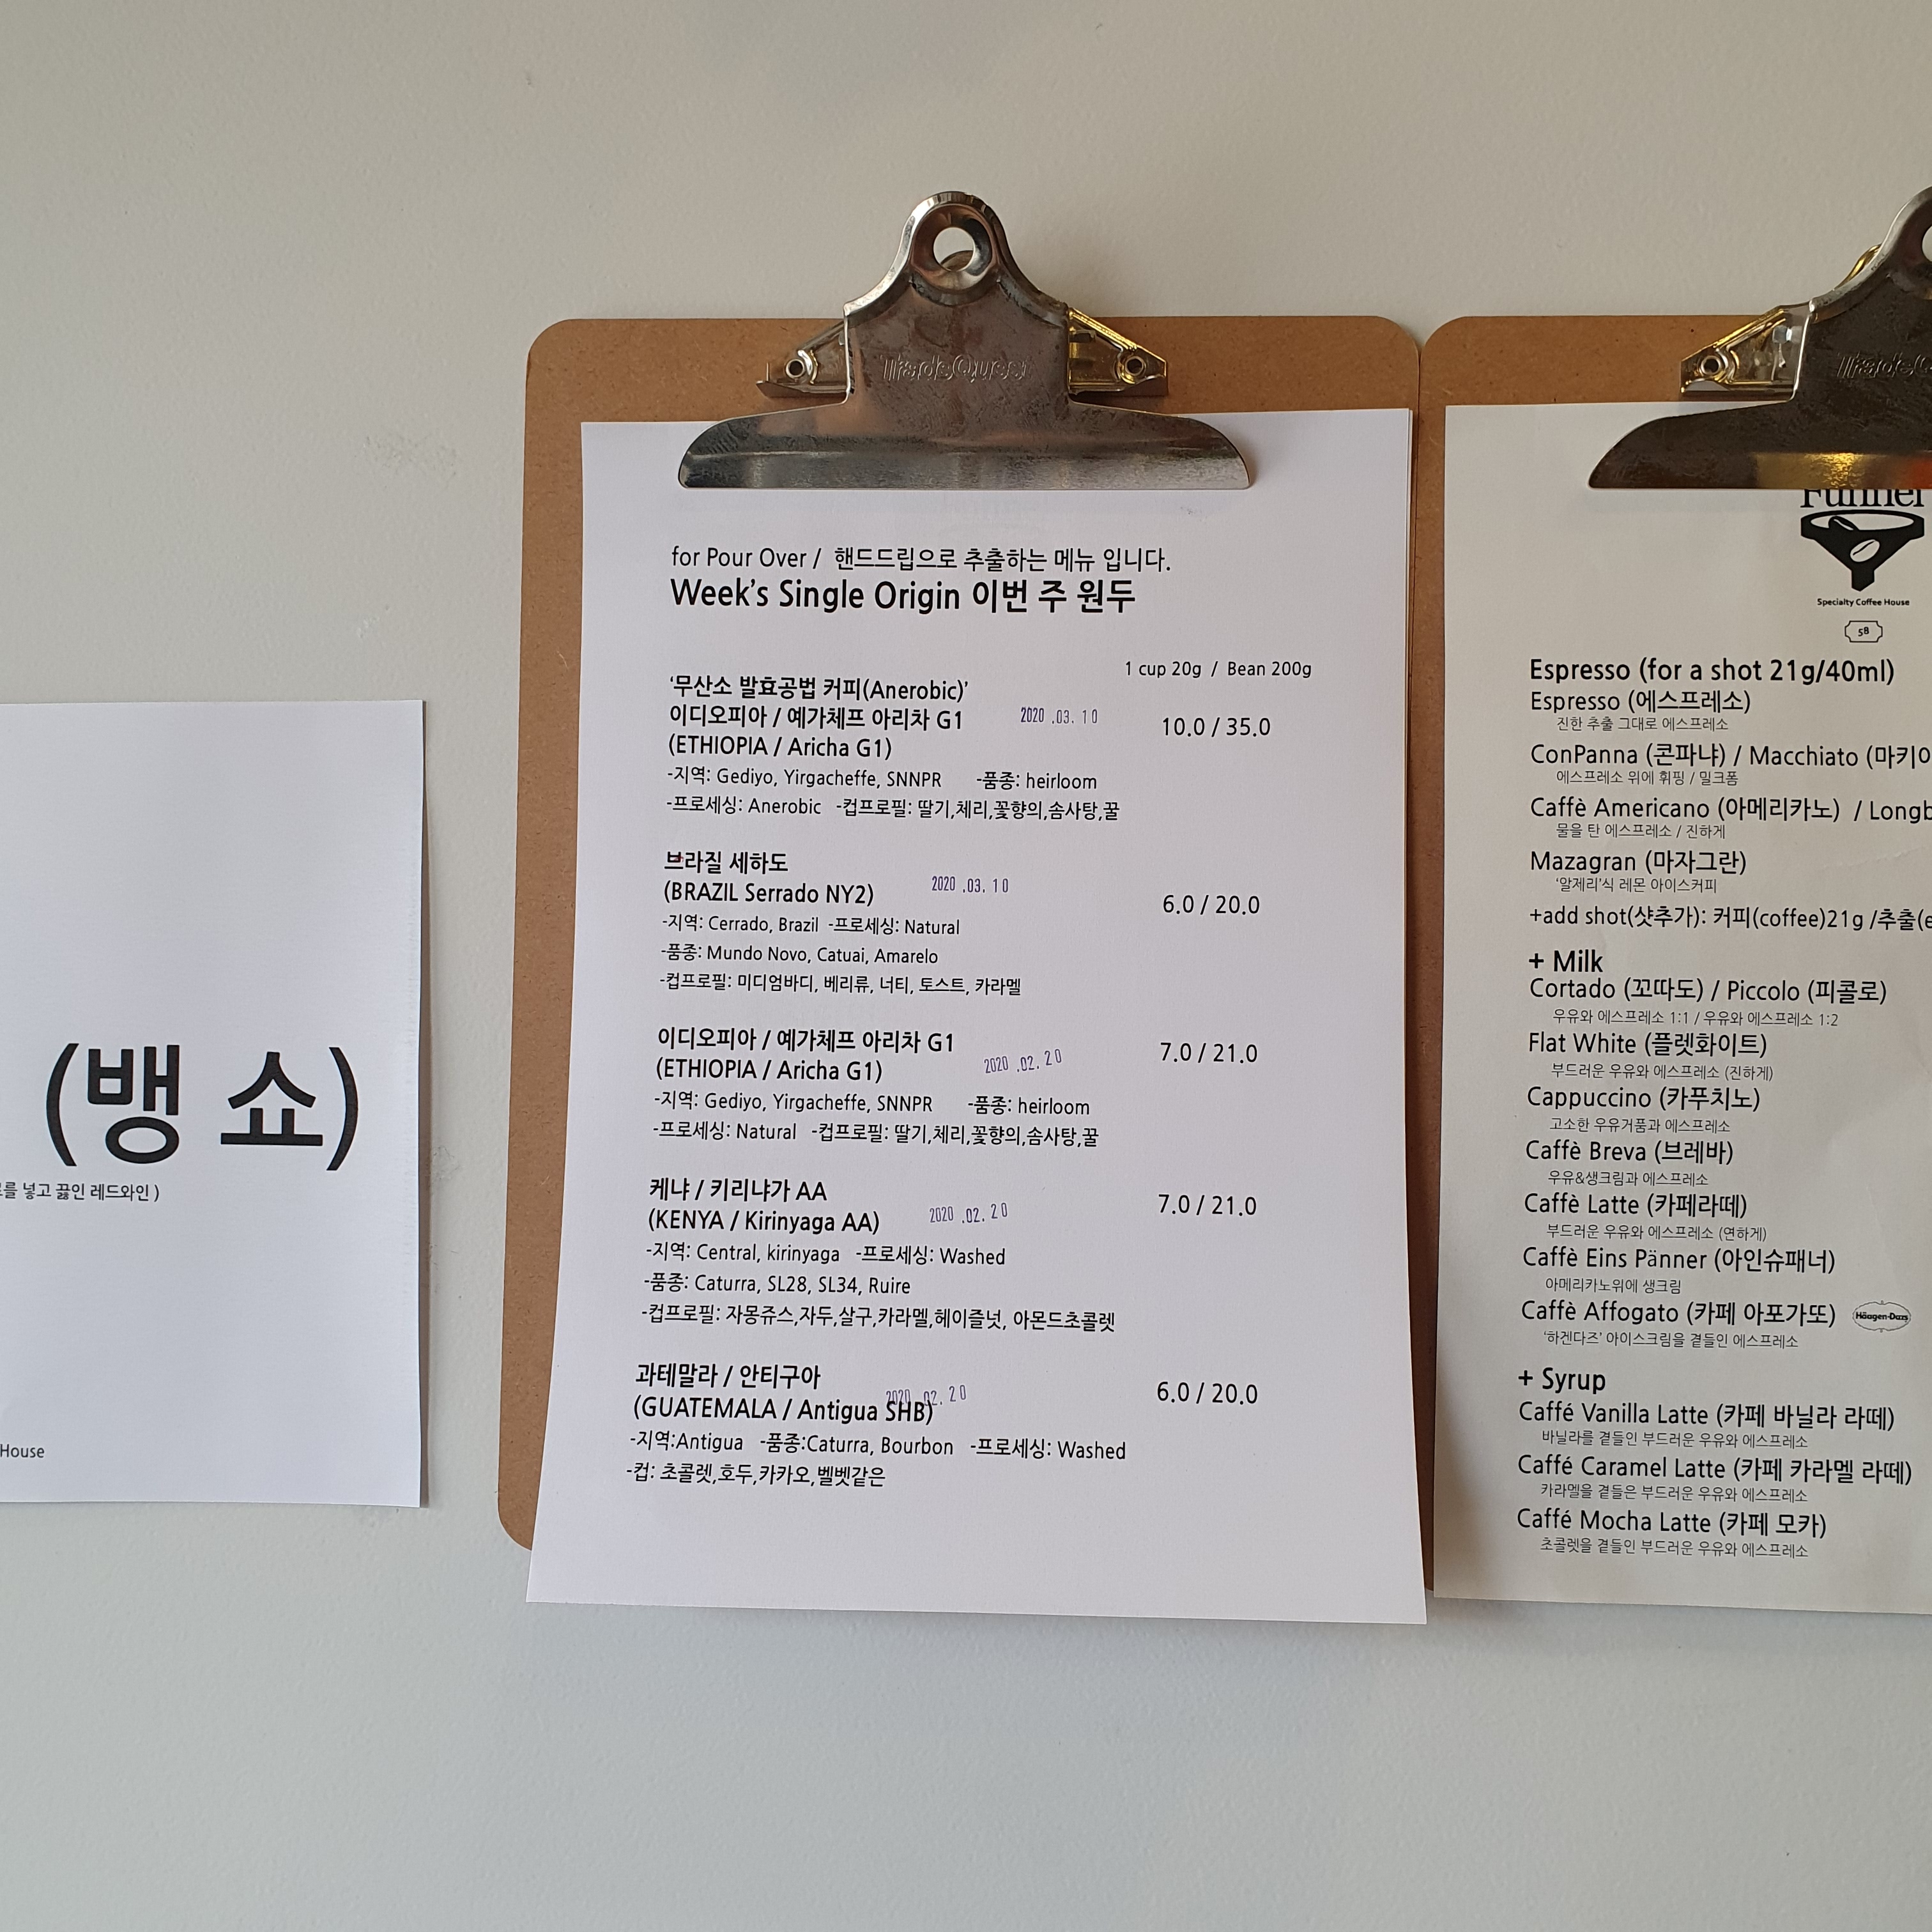 (뱅 쇼)
를 넣고 끓인 레드와인 )
House
TradeQuest
for Pour Over / 핸드드립으로 추출하는 메뉴 입니다.
Week's Single Origin 이번 주 원두
1 cup 20g / Bean 200g
'무산소 발효공법 커피(Anerobic)'
이디오피아 / 예가체프 아리차 G1 2020 .03. 10 10.0 / 35.0
(ETHIOPIA / Aricha G1)
-지역: Gediyo, Yirgacheffe, SNNPR -품종: heirloom
-프로세싱: Anerobic -컵프로필: 딸기,체리,꽃향의,솜사탕,꿀
브라질 세하도
(BRAZIL Serrado NY2) 2020 .03. 10 6.0 / 20.0
-지역: Cerrado, Brazil -프로세싱: Natural
-품종: Mundo Novo, Catuai, Amarelo
-컵프로필: 미디엄바디, 베리류, 너티, 토스트, 카라멜
이디오피아 / 예가체프 아리차 G1
(ETHIOPIA / Aricha G1) 2020 .02. 20 7.0 / 21.0
-지역: Gediyo, Yirgacheffe, SNNPR -품종: heirloom
-프로세싱: Natural -컵프로필: 딸기,체리,꽃향의,솜사탕,꿀
케냐 / 키리냐가 AA
(KENYA / Kirinyaga AA) 2020 .02. 20 7.0 / 21.0
-지역: Central, kirinyaga -프로세싱: Washed
-품종: Caturra, SL28, SL34, Ruire
-컵프로필: 자몽쥬스,자두,살구,카라멜,헤이즐넛, 아몬드초콜렛
과테말라 / 안티구아
(GUATEMALA / Antigua SHB) 2020 .02. 20 6.0 / 20.0
-지역:Antigua -품종:Caturra, Bourbon -프로세싱: Washed
-컵: 초콜렛,호두,카카오,벨벳같은
Funnel
Specialty Coffee House
58
Espresso (for a shot 21g/40ml)
Espresso (에스프레소)
진한 추출 그대로 에스프레소
ConPanna (콘파냐) / Macchiato (마키아
에스프레소 위에 휘핑 / 밀크폼
Caffè Americano (아메리카노) / Longb
물을 탄 에스프레소 / 진하게
Mazagran (마자그란)
'알제리'식 레몬 아이스커피
+add shot(샷추가): 커피(coffee)21g /추출(e
+ Milk
Cortado (꼬따도) / Piccolo (피콜로)
우유와 에스프레소 1:1 / 우유와 에스프레소 1:2
Flat White (플렛화이트)
부드러운 우유와 에스프레소 (진하게)
Cappuccino (카푸치노)
고소한 우유거품과 에스프레소
Caffè Breva (브레바)
우유&생크림과 에스프레소
Caffè Latte (카페라떼)
부드러운 우유와 에스프레소 (연하게)
Caffè Eins Pänner (아인슈패너)
아메리카노위에 생크림
Caffè Affogato (카페 아포가또) Häagen-Dazs
'하겐다즈' 아이스크림을 곁들인 에스프레소
+ Syrup
Caffé Vanilla Latte (카페 바닐라 라떼)
바닐라를 곁들인 부드러운 우유와 에스프레소
Caffé Caramel Latte (카페 카라멜 라떼)
카라멜을 곁들은 부드러운 우유와 에스프레소
Caffé Mocha Latte (카페 모카)
초콜렛을 곁들인 부드러운 우유와 에스프레소